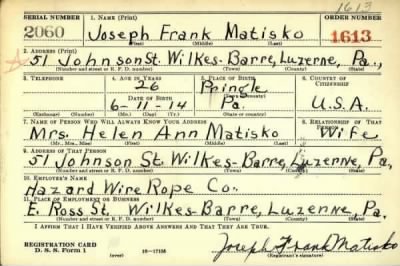 1613
SERIAL NUMBER 1. NAME (Print) ORDER NUMBER
2060 Joseph Frank Matisko 1613
(First) (Middle) (Last)
2. ADDRESS (Print)
51 Johnson St. Wilkes-Barre, Luzerne, Pa.,
(Number and street or R. F. D. number) (Town) (County) (State)
3. TELEPHONE 4. AGE IN YEARS 5. PLACE OF BIRTH 6. COUNTRY OF CITIZENSHIP
26 Pringle
DATE OF BIRTH (Town or county)
6-11-14 Pa. U.S.A.
(Exchange) (Number) (Mo.) (Day) (Yr.) (State or country)
7. NAME OF PERSON WHO WILL ALWAYS KNOW YOUR ADDRESS 8. RELATIONSHIP OF THAT PERSON
Mrs. Helen Ann Matisko Wife
(Mr., Mrs., Miss) (First) (Middle) (Last)
9. ADDRESS OF THAT PERSON
51 Johnson St. Wilkes-Barre, Luzerne, Pa,
(Number and street or R. F. D. number) (Town) (County) (State)
10. EMPLOYER'S NAME
Hazard Wire Rope Co.
11. PLACE OF EMPLOYMENT OR BUSINESS
E. Ross St. Wilkes-Barre, Luzerne, Pa.
(Number and street or R. F. D. number) (Town) (County) (State)
I AFFIRM THAT I HAVE VERIFIED ABOVE ANSWERS AND THAT THEY ARE TRUE.
REGISTRATION CARD
D. S. S. Form 1 (over) 16-17105 Joseph Frank Matisko
(Registrant's signature)